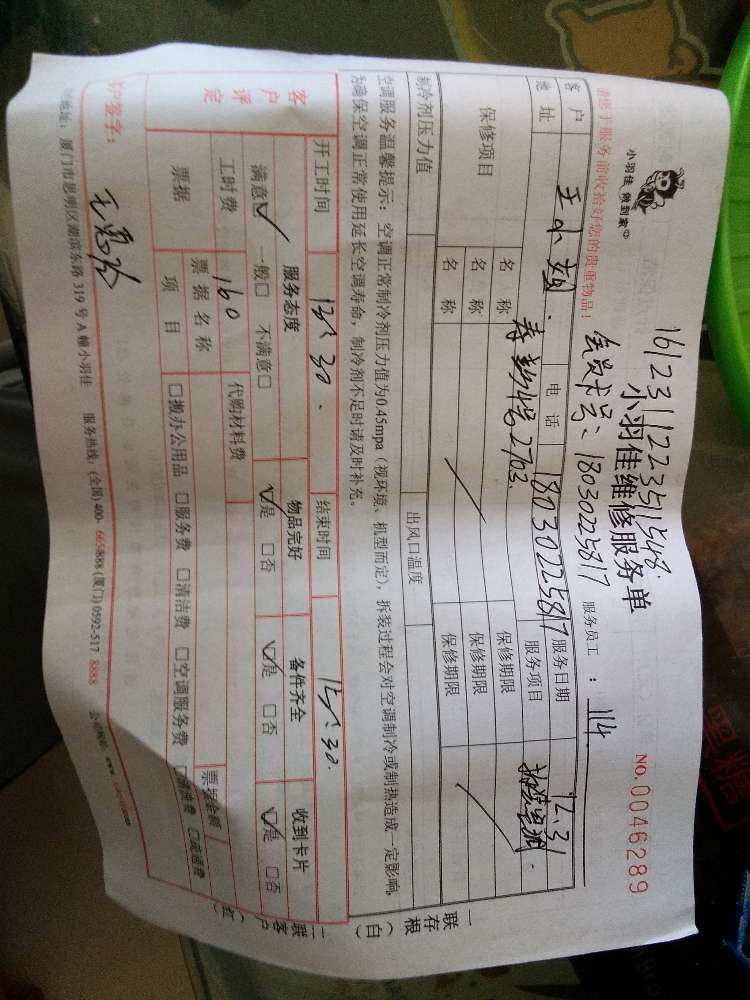 小羽佳 做到家
161231122351548
小羽佳维修服务单
NO.0046289
请您于服务前收拾好您的贵重物品!
会员卡号: 18030225817 服务员工: 114
客户 王小 电话 18030225817 服务日期 12.31
地址 2703 服务项目
保修项目 名称 保修期限
名称 保修期限
名称 保修期限
制冷剂压力值 出风口温度
空调服务温馨提示: 空调正常制冷剂压力值为0.45mpa (视环境、机型而定), 拆装过程会对空调制冷或制热造成一定影响,
为确保空调正常使用延长空调寿命, 制冷剂不足时请及时补充。
开工时间 13:30 结束时间 15:30
客户评定 服务态度 物品完好 备件齐全 收到卡片
满意☑ 一般□ 不满意□ ☑是 □否 ☑是 □否 ☑是 □否
工时费 160 代购材料费
票据 票据名称 票据金额
项目 □搬办公用品 □服务费 □清洁费 □空调服务费 □清洗费 □疏通费
客户签字:
地址: 厦门市思明区湖滨东路 319 号 A 幢小羽佳 服务热线: (全国) 400-665-8888 (厦门) 0592-517 8888 公司网站: www.
一联存根(白)
二联客户(红)